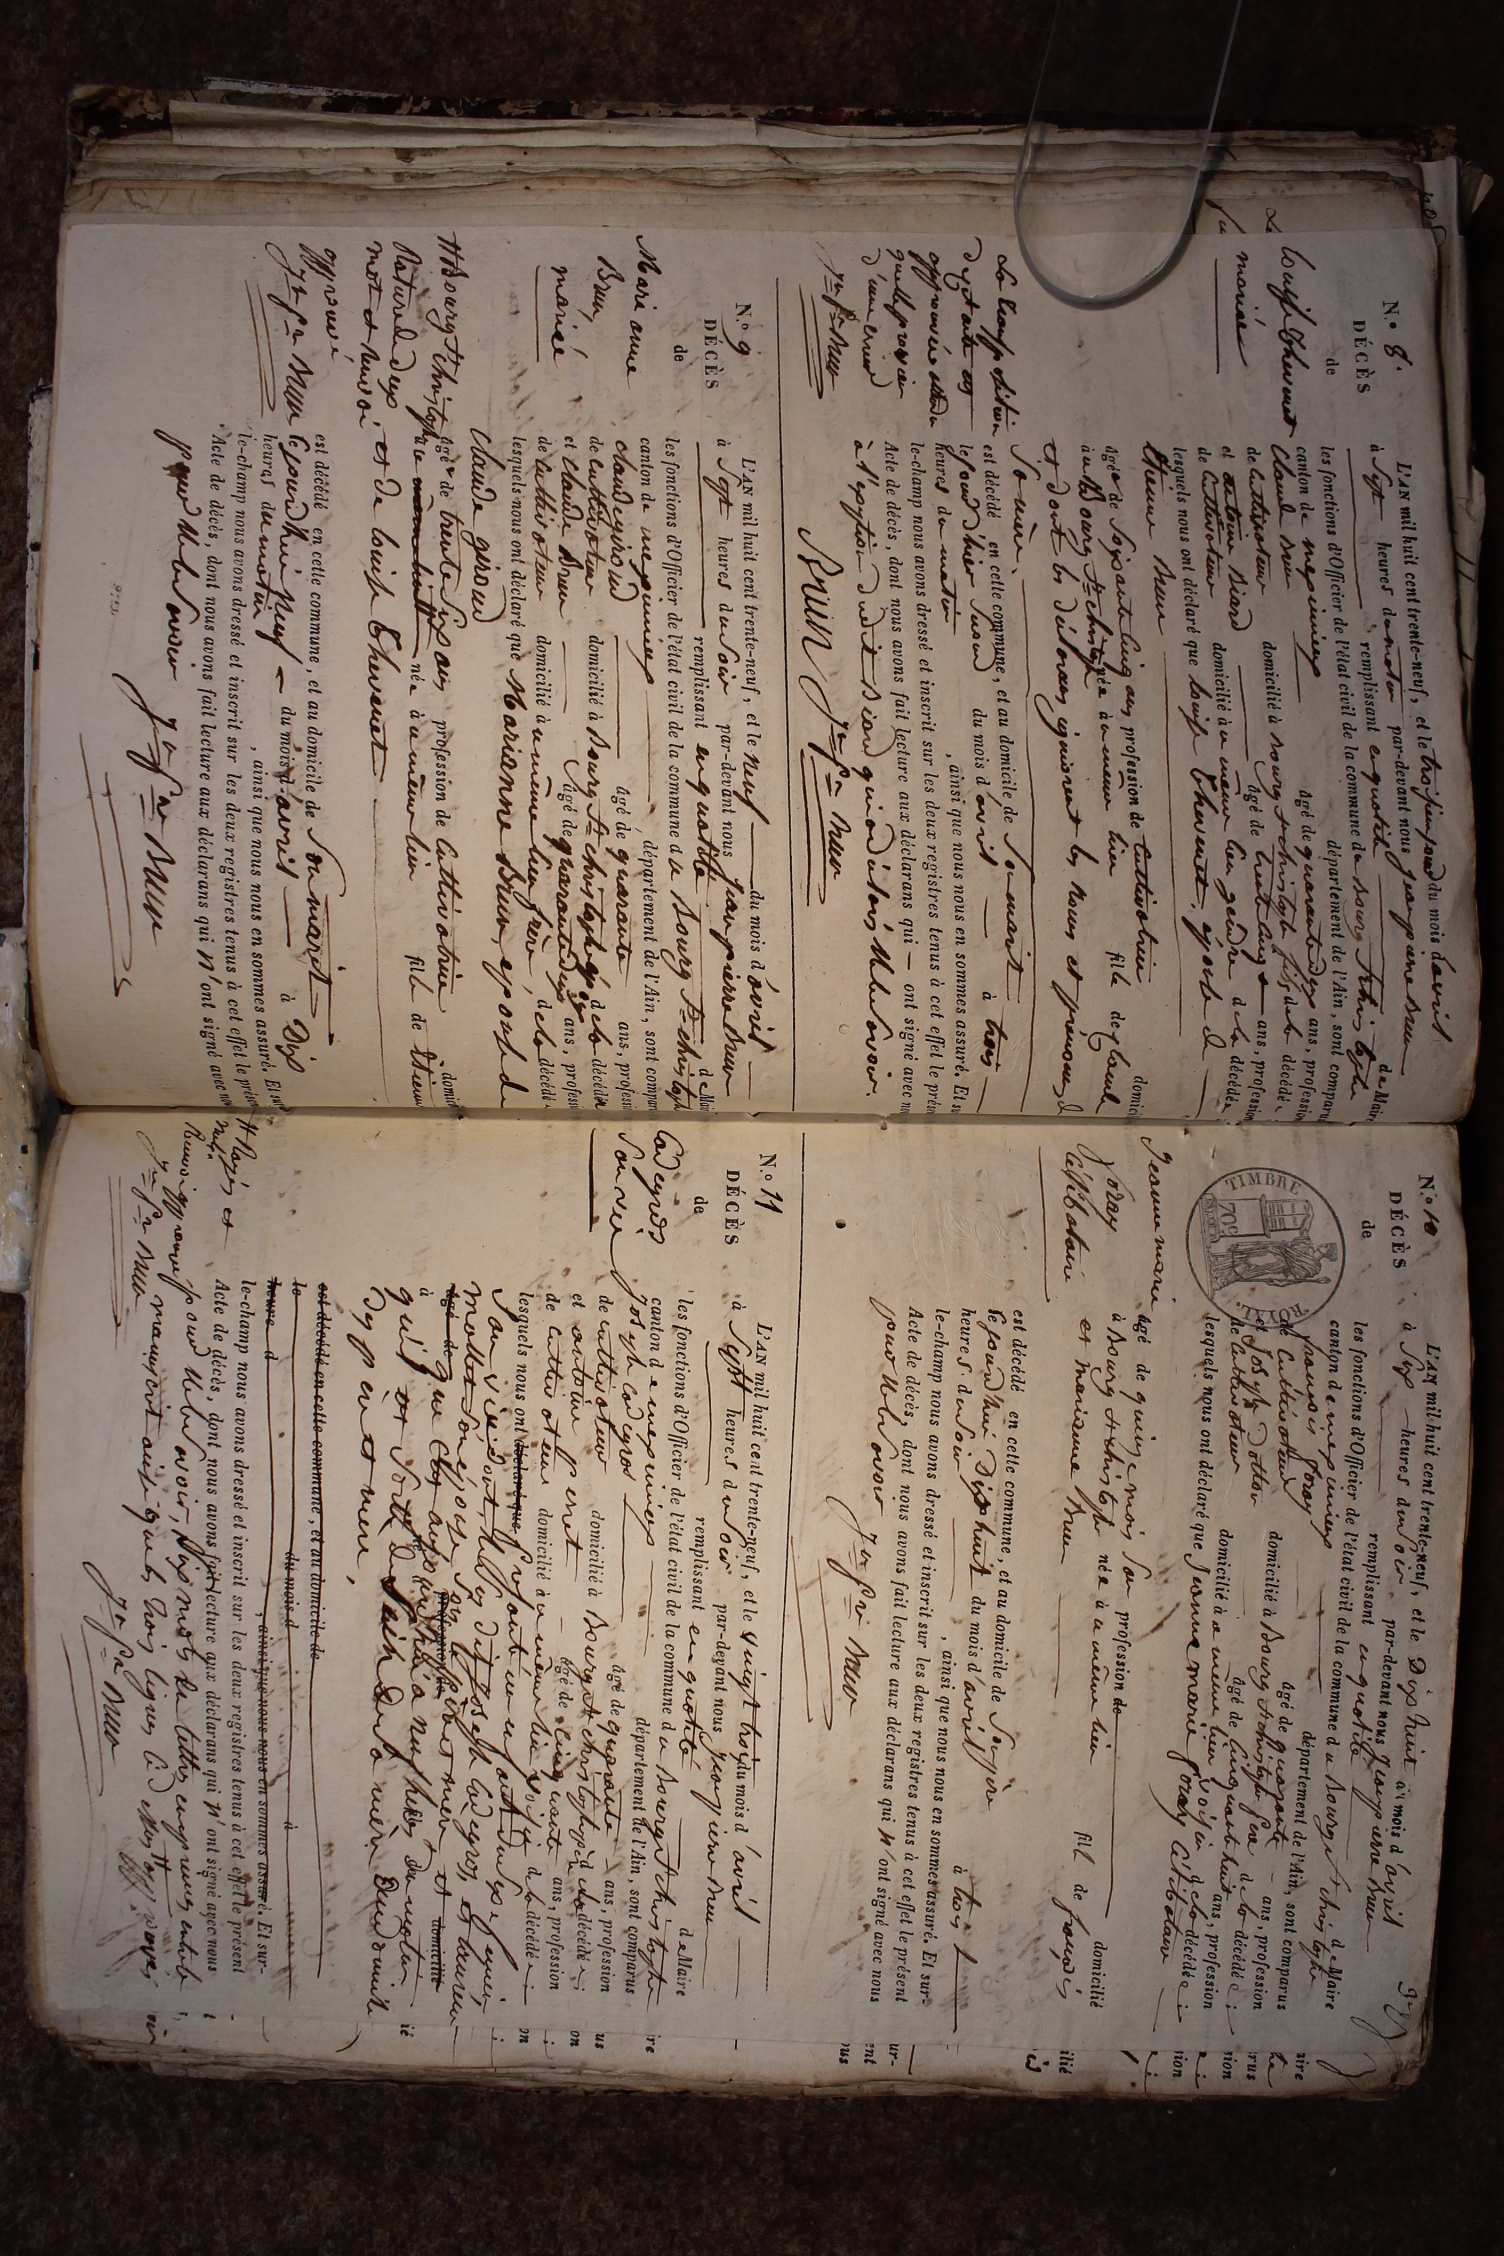 N.º 8.
DÉCÈS
de
Louise Thevenet
mariée
L'AN mil huit cent trente-neuf, et le troisieme jour du mois d'avril
à Sept heures du matin par-devant nous Jean pierre Brun
remplissant en qualité de Maire
les fonctions d'Officier de l'état civil de la commune de Bourg St Christophe
canton de meximieux département de l'Ain, sont comparus
Claude Brun âgé de quarante deux ans, profession
de Cultivateur domicilié à Bourg St christophe fils de la décédée
et antoine Biard âgé de trente cinq ans, profession
de Cultivateur domicilié à u même lieu gendre de la décédée
lesquels nous ont déclaré que Louise Thevenet, épouse d
Etienne Brun
âgée de Soixante cinq ans profession de Cultivatrice domicil
à u Bourg St christophe née à u meme lieu fille de Claude
et dont les déclarans ignorent les noms et prénoms d
Sa mère.
est décédé en cette commune, et au domicile de Son marit
le jour d'hier deux du mois d'avril à trois
heures du matin, ainsi que nous nous en sommes assuré. Et su
le-champ nous avons dressé et inscrit sur les deux registres tenus à cet effet le prés
Acte de décès, dont nous avons fait lecture aux déclarans qui ont signé avec n
à l'exeption dudit Biard qui a dit ne le Savoir.
BRUN Jn pre Brun
Jn pre Brun
N.º 9
DÉCÈS
de
Mari anne
Brun
mariée
L'AN mil huit cent trente-neuf, et le neuf du mois d'avril
à Sept heures du Soir par-devant nous Jean pierre Brun
remplissant en qualité de Mai
les fonctions d'Officier de l'état civil de la commune d u Bourg St christoph
canton de meximieux, département de l'Ain, sont compar
Claude giroud âgé de quarante ans, profess
de Cultivateur domicilié à Bourg St christophe de la décédée
et Claude Brun âgé de quarante deux ans, profess
de Cultivateur domicilié à u même lieu frère de la décédée
lesquels nous ont déclaré que Marianne Brun, épouse de
Claude giroud
âgée de trente Six ans profession de Cultivatrice domici
à u même lieu née à u même lieu fille de Etienne
et de Louise Thevenet
# Bourg St Christophe
Rature deux
mot et Renvoi
approuvé
Jn pre Brun
est décédé en cette commune, et au domicile de Son marit
le jourd'hui neuf du mois d'avril à Dix
heures du matin, ainsi que nous nous en sommes assuré. Et sur
le-champ nous avons dressé et inscrit sur les deux registres tenus à cet effet le prés
Acte de décès, dont nous avons fait lecture aux déclarans qui n'ont signé avec nou
pour ne le Savoir Jn pre Brun
N.º 10
DÉCÈS
de
Jeanne marie
goray
Célibataire
TIMBRE
70c
ROYAL
L'AN mil huit cent trente-neuf, et le Dix huit du mois d'avril
à Six heures du Soir par-devant nous Jean pierre Brun
remplissant en qualité de Maire
les fonctions d'Officier de l'état civil de la commune d u Bourg St christophe
canton de meximieux département de l'Ain, sont comparus
françois goray âgé de quarante ans, profession
de Cultivateur domicilié à Bourg St christophe père de la décédée;
et Joseph âgé de Cinquante huit ans, profession
de Cultivateur domicilié à u même lieu Voisin de la décédée;
lesquels nous ont déclaré que Jeanne marie goray Célibataire
âgé de quinze mois Sou profession de domicilié
à Bourg St christophe née à u même lieu fille de françois
et marianne Brun
est décédé en cette commune, et au domicile de Son père
le jourd'hui Dix huit du mois d'avril à trois
heures du Soir, ainsi que nous nous en sommes assuré. Et sur-
le-champ nous avons dressé et inscrit sur les deux registres tenus à cet effet le présent
Acte de décès, dont nous avons fait lecture aux déclarans qui n'ont signé avec nous
pour ne le Savoir Jn pre Brun
N.º 11
DÉCÈS
de
Cadegros
Sans vie
L'AN mil huit cent trente-neuf, et le vingt trois du mois d'avril
à Sept heures du Soir par-devant nous Jean pierre Brun
remplissant en qualité de Maire
les fonctions d'Officier de l'état civil de la commune d u Bourg St christophe
canton de meximieux département de l'Ain, sont comparus
Joseph Cadegros âgé de quarante ans, profession
de Cultivateur domicilié à Bourg St christophe père de la décédée;
et antoine Perret âgé de Cinquante ans, profession
de Cultivateur domicilié à u même lieu voisin de la décédée;
lesquels nous ont déclaré que présenté un enfant du Sexe féminin
Sans vie dont fille dit Joseph Cadegros, et laurence
mollet Son épouse Ses père et mère, et
âgé de que Cet profession de domicilié
à née à neuf heures du matin
qu'il est Sorti du Sein de la mère dudomicile
de Ses père et mère,
est décédé en cette commune, et au domicile de
le du mois d à
heure d, ainsi que nous nous en sommes assuré. Et sur-
le-champ nous avons dressé et inscrit sur les deux registres tenus à cet effet le présent
Acte de décès, dont nous avons fait lecture aux déclarans qui n'ont signé avec nous
pour ne le Savoir, Dix mots en lettre imprimés
ainsi que les trois lignes ci dessus
Jn pre Brun
# Rayés et
nuls
Renvoi approuvé
Jn pre Brun